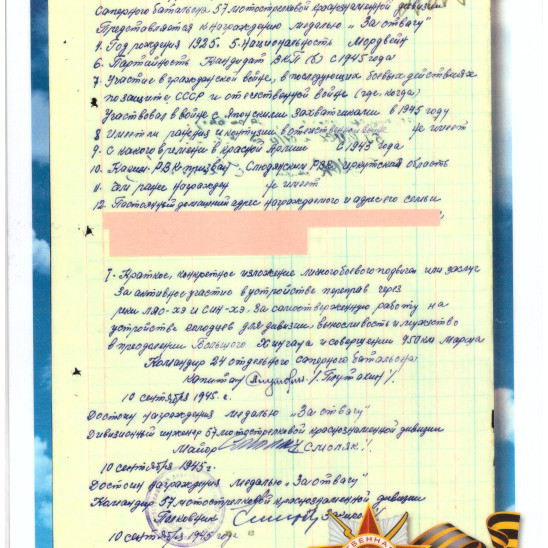 Саперного батальона 57 мотострелковой краснознаменной дивизии
Представляется к награждению медалью „За отвагу"
4. Год рождения 1925. 5. Национальность Мордвин
6. Партийность Кандидат ВКП(б) с 1945 года
7. Участие в гражданской войне, в последующих боевых действиях
по защите СССР и отечественной войне (где, когда)
Участвовал в войне с Японскими захватчиками в 1945 году
8 Имеет ли ранения и контузии в отечественной войне не имеет
9. С какого времени в красной Армии с 1943 года
10. Каким РВК призван Слюдянским РВК Иркутская область
11. Чем ранее награжден не имеет
12. Постоянный домашний адрес награждаемого и адрес его семьи
I. Краткое, конкретное изложение личного боевого подвига или заслуг
За активное участие в устройстве переправ через
реки ЛЯО-ХЭ и СИН-ХЭ. За самоотверженную работу на
устройстве колодцев для дивизии, выносливость и мужество
в преодолении Большого Хингана и совершении 950 км марша
Командир 24 отдельного саперного батальона
Капитан
10 сентября 1945 г.
Достоин награждения медалью „За отвагу"
Дивизионный инженер 57 мотострелковой краснознаменной дивизии
Майор /Смоляк/
10 сентября 1945 г.
Достоин награждения медалью „За отвагу"
Командир 57 мотострелковой краснознаменной дивизии
Полковник
10 сентября 1945 года